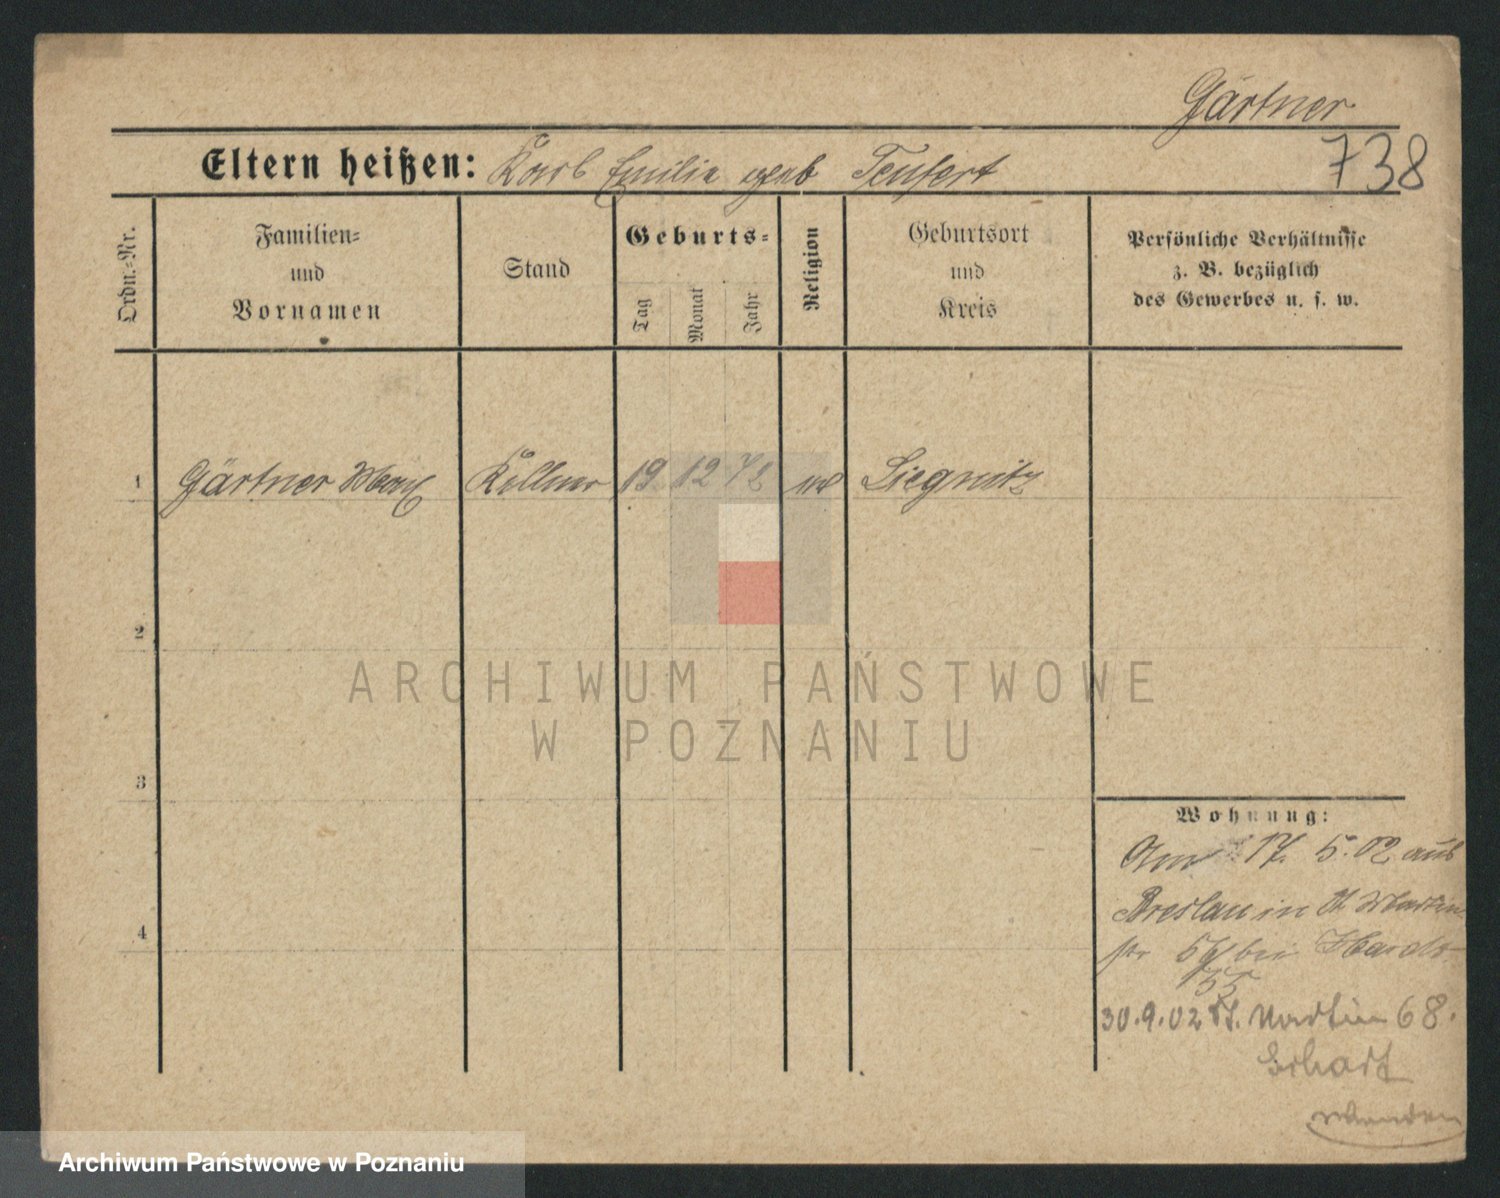 Gärtner
738
Eltern heißen: Karl Emilia geb Teufert
Ordn.=Nr.
Familien= und Vornamen
Stand
Geburts=
Tag
Monat
Jahr
Religion
Geburtsort und Kreis
Persönliche Verhältnisse
z. B. bezüglich
des Gewerbes u. s. w.
1 Gärtner Max Kellner 19 12 72 Liegnitz
2
ARCHIWUM PAŃSTWOWE
W POZNANIU
3
Wohnung:
Am 17. 5. 02 aus
Breslau in St Martin
str bei
4
30.9.02 St. Martin 68.
Wenden
Archiwum Państwowe w Poznaniu